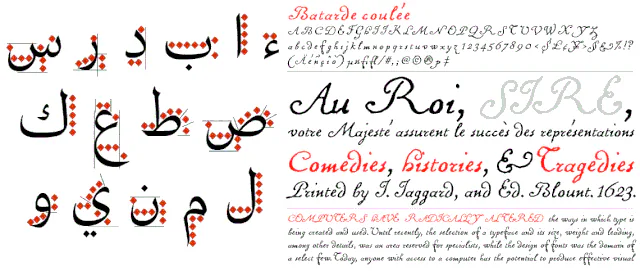 ء ا ب د ر س
ص ط ع ك
ل م ن ي و
Batarde coulée
ABCDEFGHIJKLMNOPQRSTUVWXYZ
abcdefghijklmnopqrstuvwxyz1234567890
Au Roi, SIRE,
votre Majesté assurent le succès des représentations
Comedies, histories, & Tragedies
Printed by I. Iaggard, and Ed. Blount. 1623.
COMPUTERS HAVE RADICALLY ALTERED the ways in which type is
being created and used. Until recently, the selection of a typeface and its size, weight and leading,
among other details, was an area reserved for specialists, while the design of fonts was the domain of
a select few. Today, anyone with access to a computer has the potential to produce effective visual